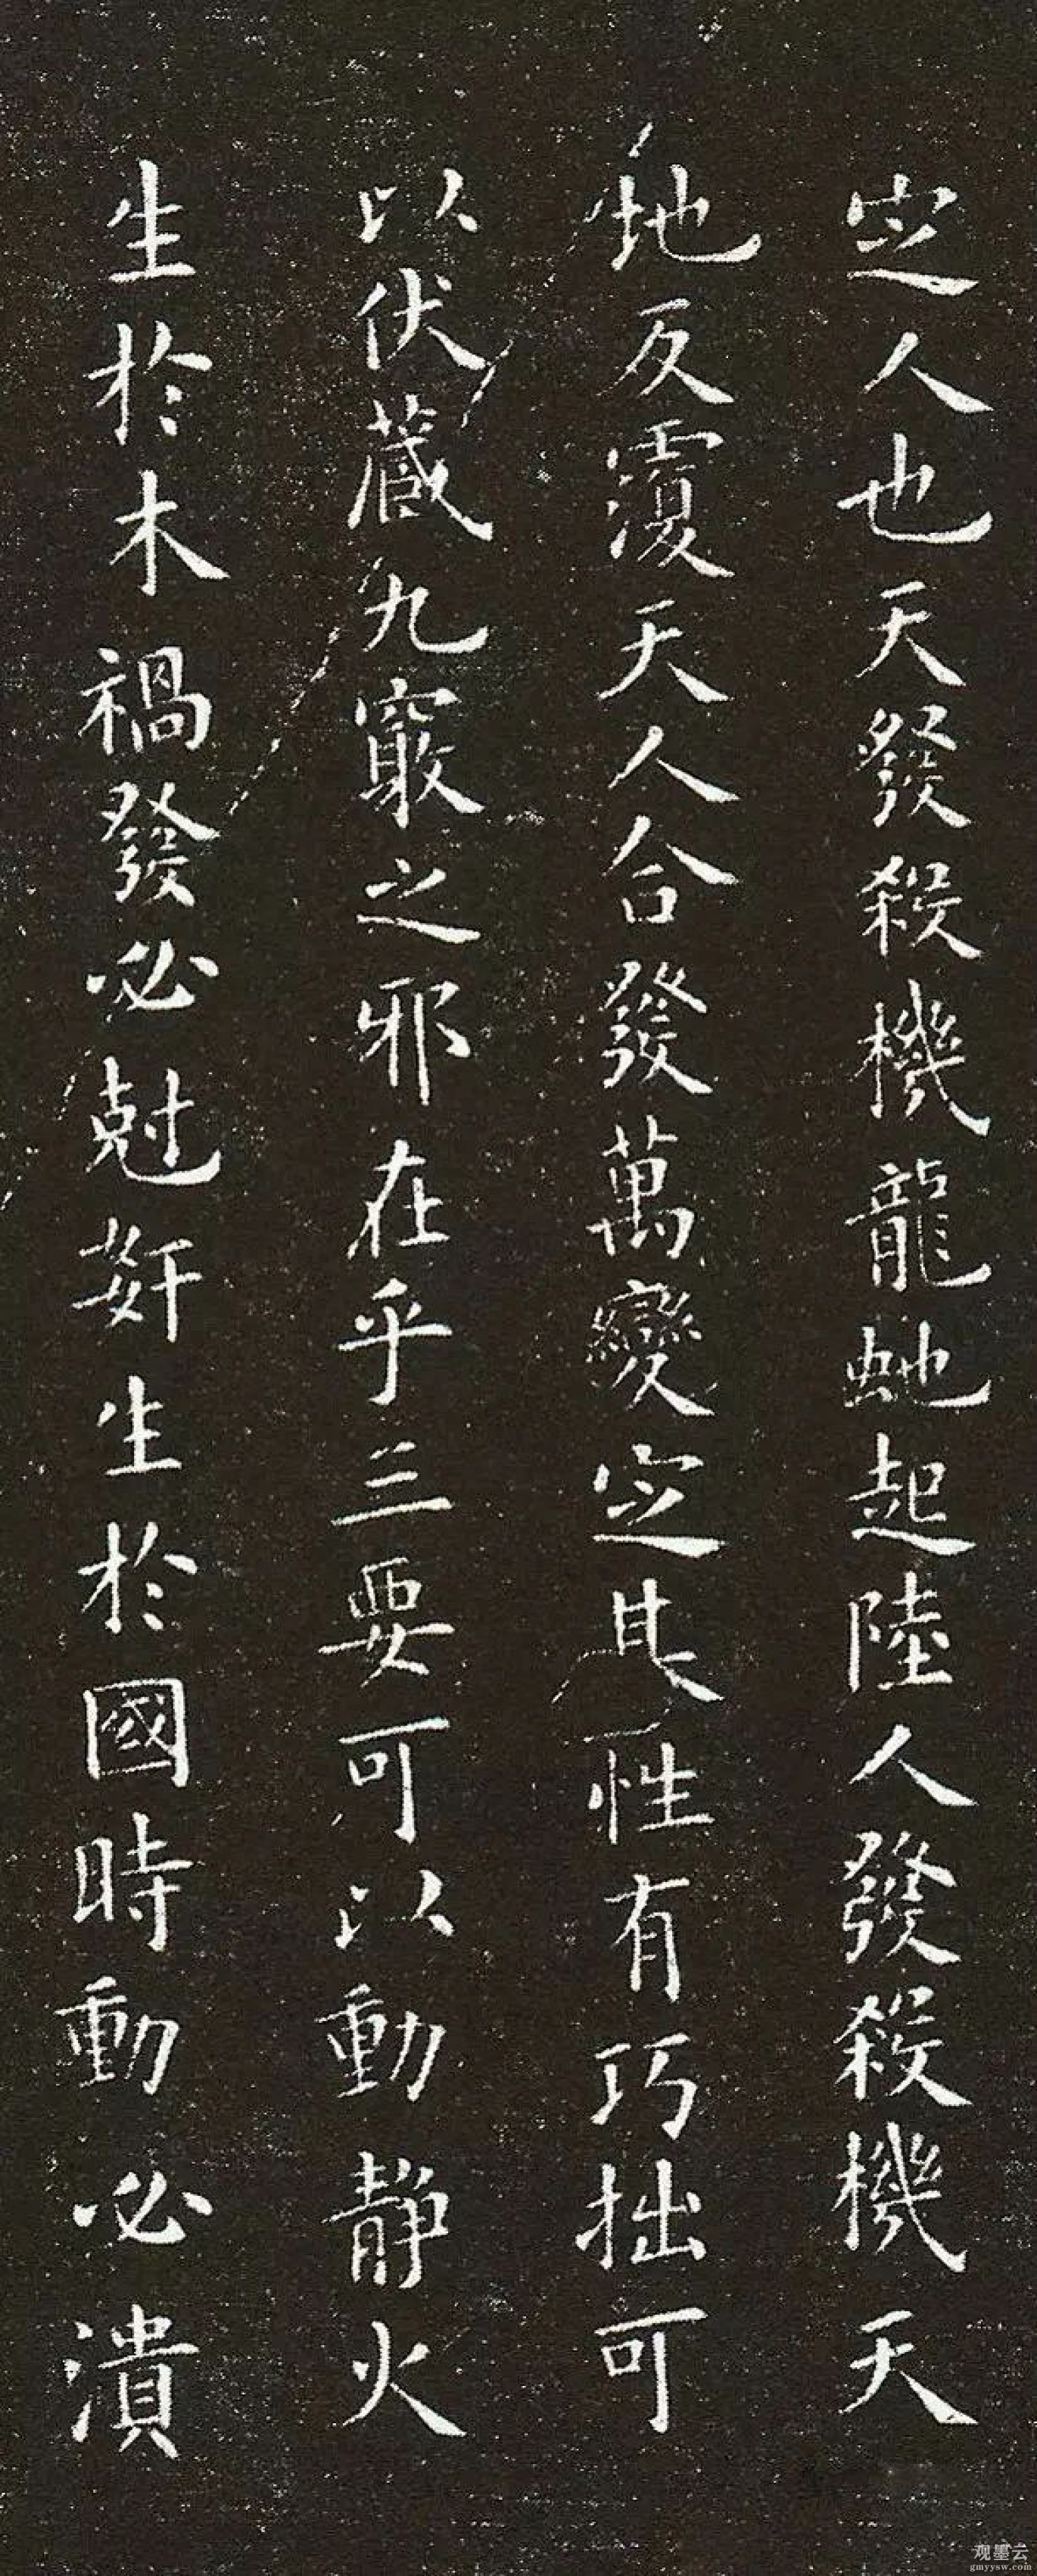 定人也天發殺機龍虵起陸人發殺機天
地反覆天人合發萬變定其性有巧拙可
以伏藏九竅之邪在乎三要可以動静火
生於木禍發必尅姧生於國時動必潰
观墨云
gmyysw.com